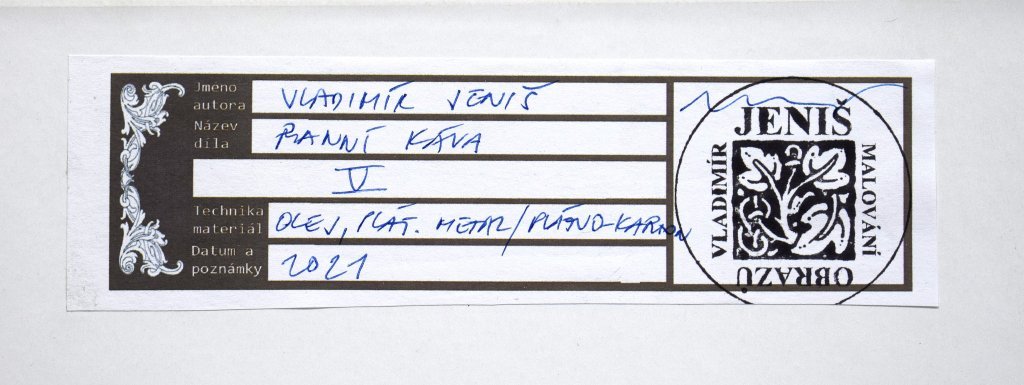 Jmeno
autora
VLADIMÍR JENIŠ
Název
díla
RANNÍ KÁVA
V
Technika
materiál
OLEJ, PLÁT. METAL/PLÁTNO-KARTON
Datum a
poznámky
2021
JENIŠ
VLADIMÍR
MALOVÁNÍ
OBRAZŮ